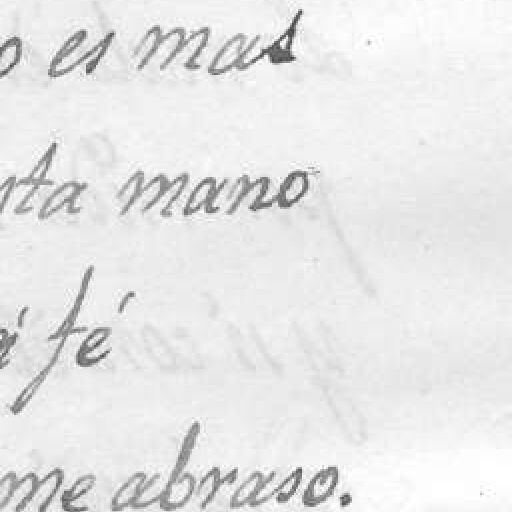 o es mas
sta mano
fé
me abraso.